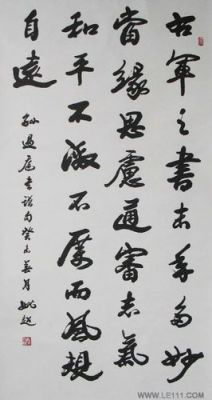 右軍之書末年多妙
當緣思慮通審志氣
和平不激不厲而風規
自遠
孫過庭書譜句癸未春月
WWW.LE111.COM